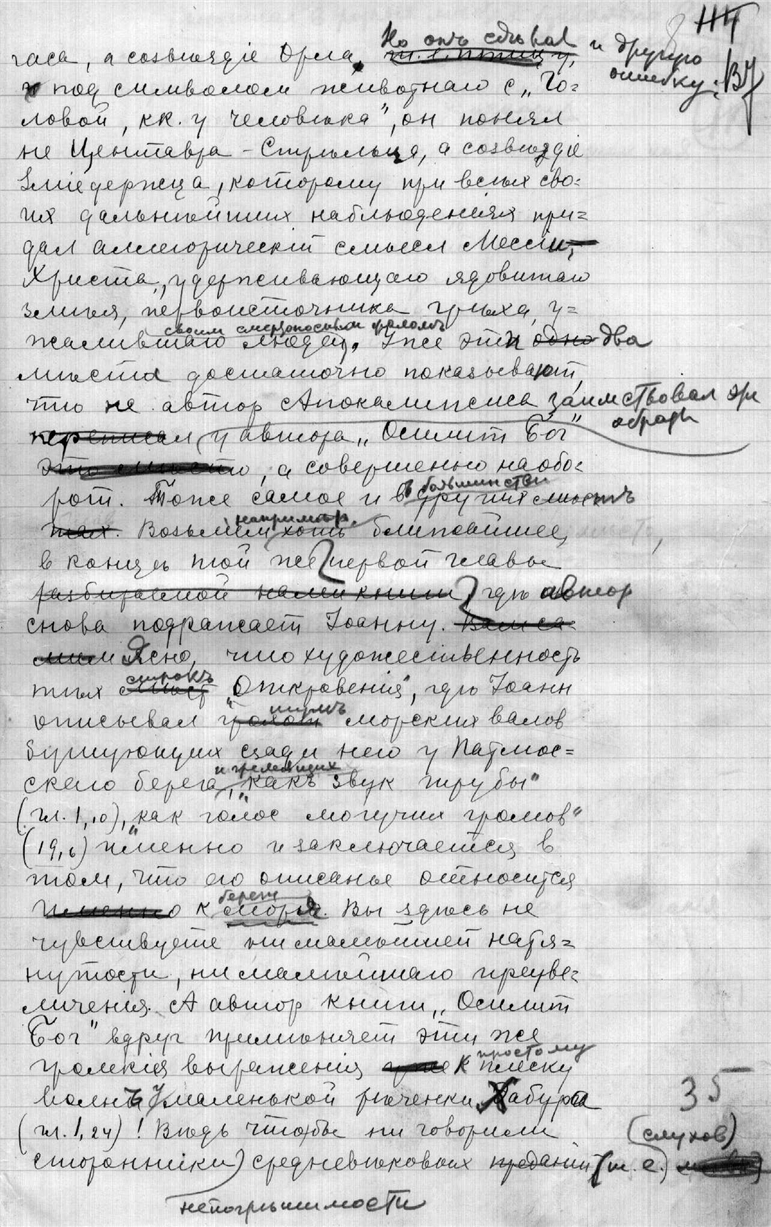 114
Но онъ сдѣлал и другую
ошибку: В7
гаса, а созвѣздіе Орла,
под символом животнаго с „Го-
ловой, кк. у человѣка", он понял
не Центавра - Стрѣльца, а созвѣздіе
Зміедержца, которому при всѣх сво-
их дальнѣйших наблюденіях при-
дал аллегорическій смысл Мессіи-
Христа, удерживающаго ядовитаго
змѣя, первоисточника грѣха, у-
жалившаго своим смертоноснымъ жаломъ людей. Уже эти два
мѣста достаточно показывают,
что не автор Апокалипсиса заимствовал эти
образы
у автора „Осилит Бог"
, а совершенно наобо-
рот. Тоже самое и в большинстве других мѣстъ
Возьмем напримѣр ближайшее,
в концѣ той же первой главы
гдѣ автор
снова подражает Іоанну.
Ясно, что художественность
тѣх строкъ „Откровенія", гдѣ Іоанн
описывал шумъ морских валов
бушующих сзади него у Патмос-
скаго берега и гремѣвших „какъ звук трубы"
(гл. 1, 10), „как голос могучих громов"
(19, 6) именно и заключается в
том, что его описанье относится
к берегу моря. Вы здѣсь не
чувствуете ни малѣйшей натя-
нутости, ни малѣйшаго преуве-
личенія. А автор книги „Осилит
Бог" вдруг примѣняет эти же
громкія выраженія к простому плеску
волнъ маленькой рѣченки Хабура
(гл. 1, 24)! Вѣдь чтобы ни говорили
сторонники непогрѣшимости средневѣковых (т. е. слухов)
35